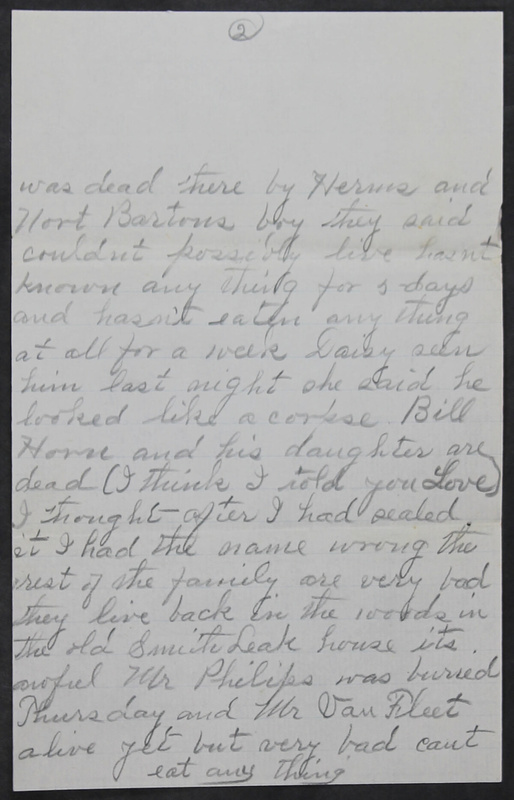 2
was dead there by Herms and
Nort Bartons boy they said
couldnt possibly live hasn't
known any thing for 5 days
and hasn't eaten any thing
at all for a week Daisy seen
him last night she said he
looked like a corpse Bill
Horn and his daughter are
dead (I think I told you Love)
I thought after I had sealed
it I had the name wrong the
rest of the family are very bad
they live back in the woods in
the old Smith Leak house its
awful Mr Philips was buried
Thursday and Mr Van Fleet
alive yet but very bad cant
eat any thing